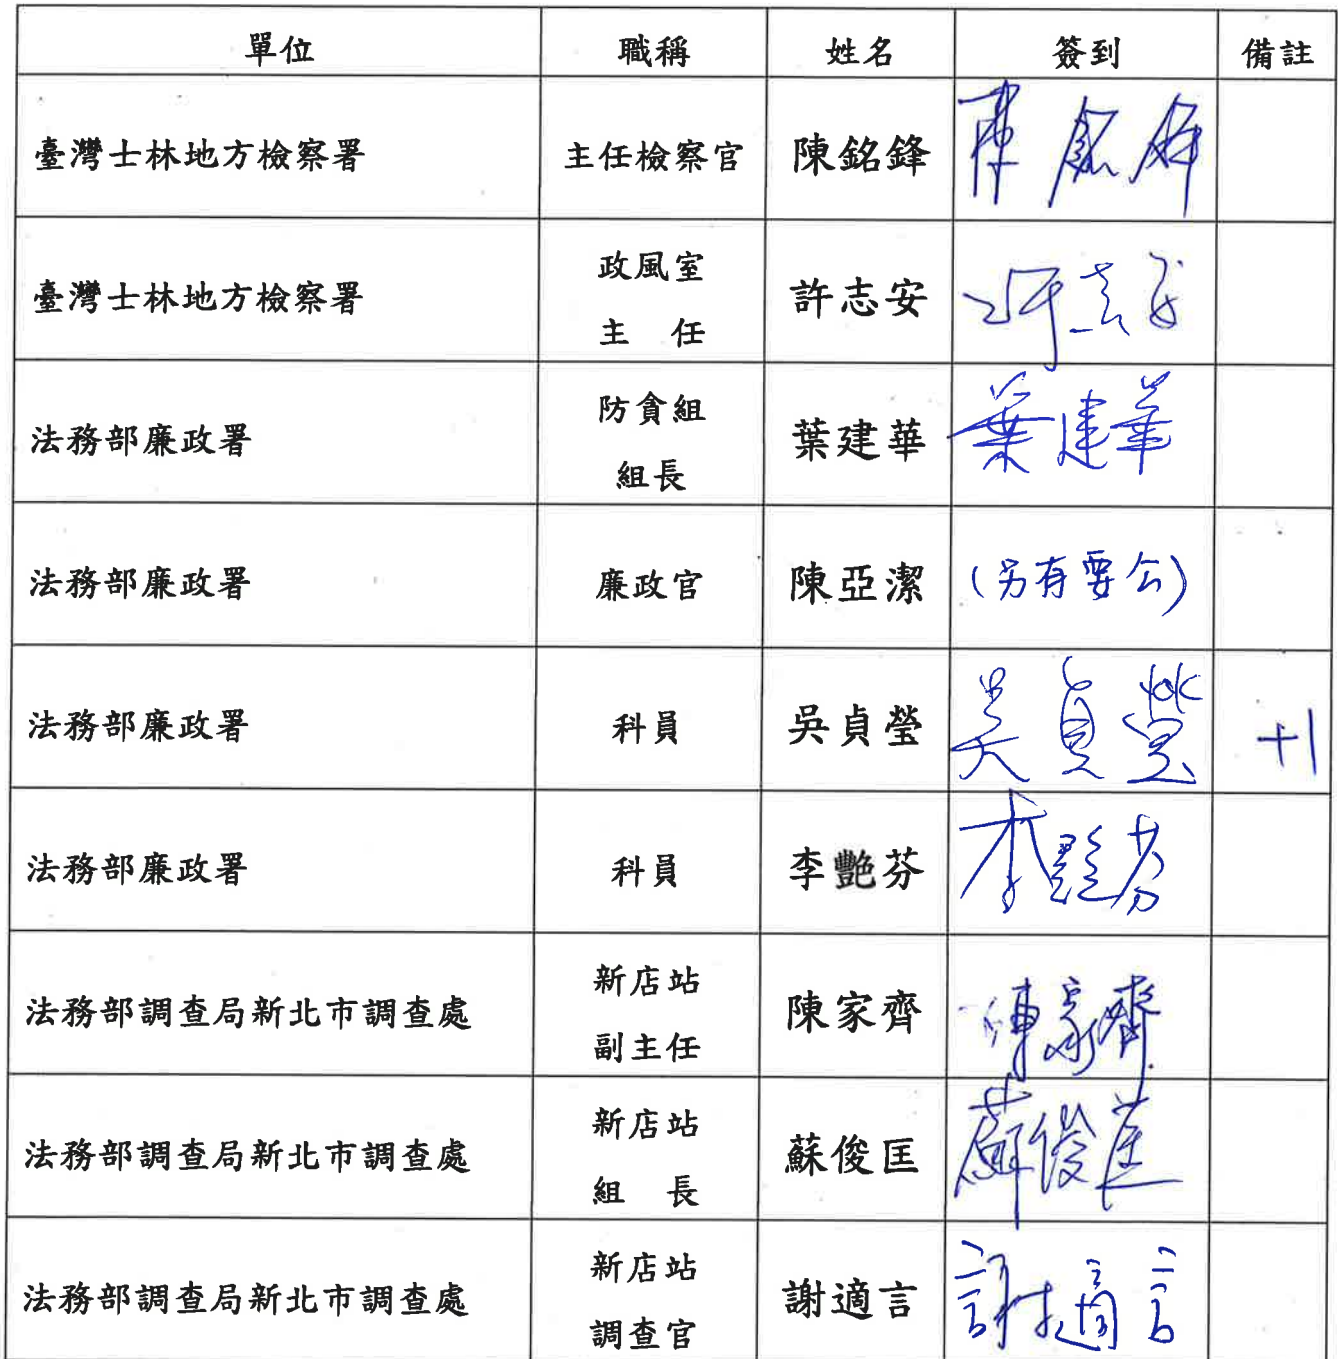 單位 職稱 姓名 簽到 備註
臺灣士林地方檢察署 主任檢察官 陳銘鋒 陳銘鋒
臺灣士林地方檢察署 政風室 主 任 許志安 許志安
法務部廉政署 防貪組 組長 葉建華 葉建華
法務部廉政署 廉政官 陳亞潔 (另有要公)
法務部廉政署 科員 吳貞瑩 吳貞瑩 +1
法務部廉政署 科員 李艷芬 李艷芬
法務部調查局新北市調查處 新店站 副主任 陳家齊 陳家齊
法務部調查局新北市調查處 新店站 組 長 蘇俊匡 蘇俊匡
法務部調查局新北市調查處 新店站 調查官 謝適言 謝適言